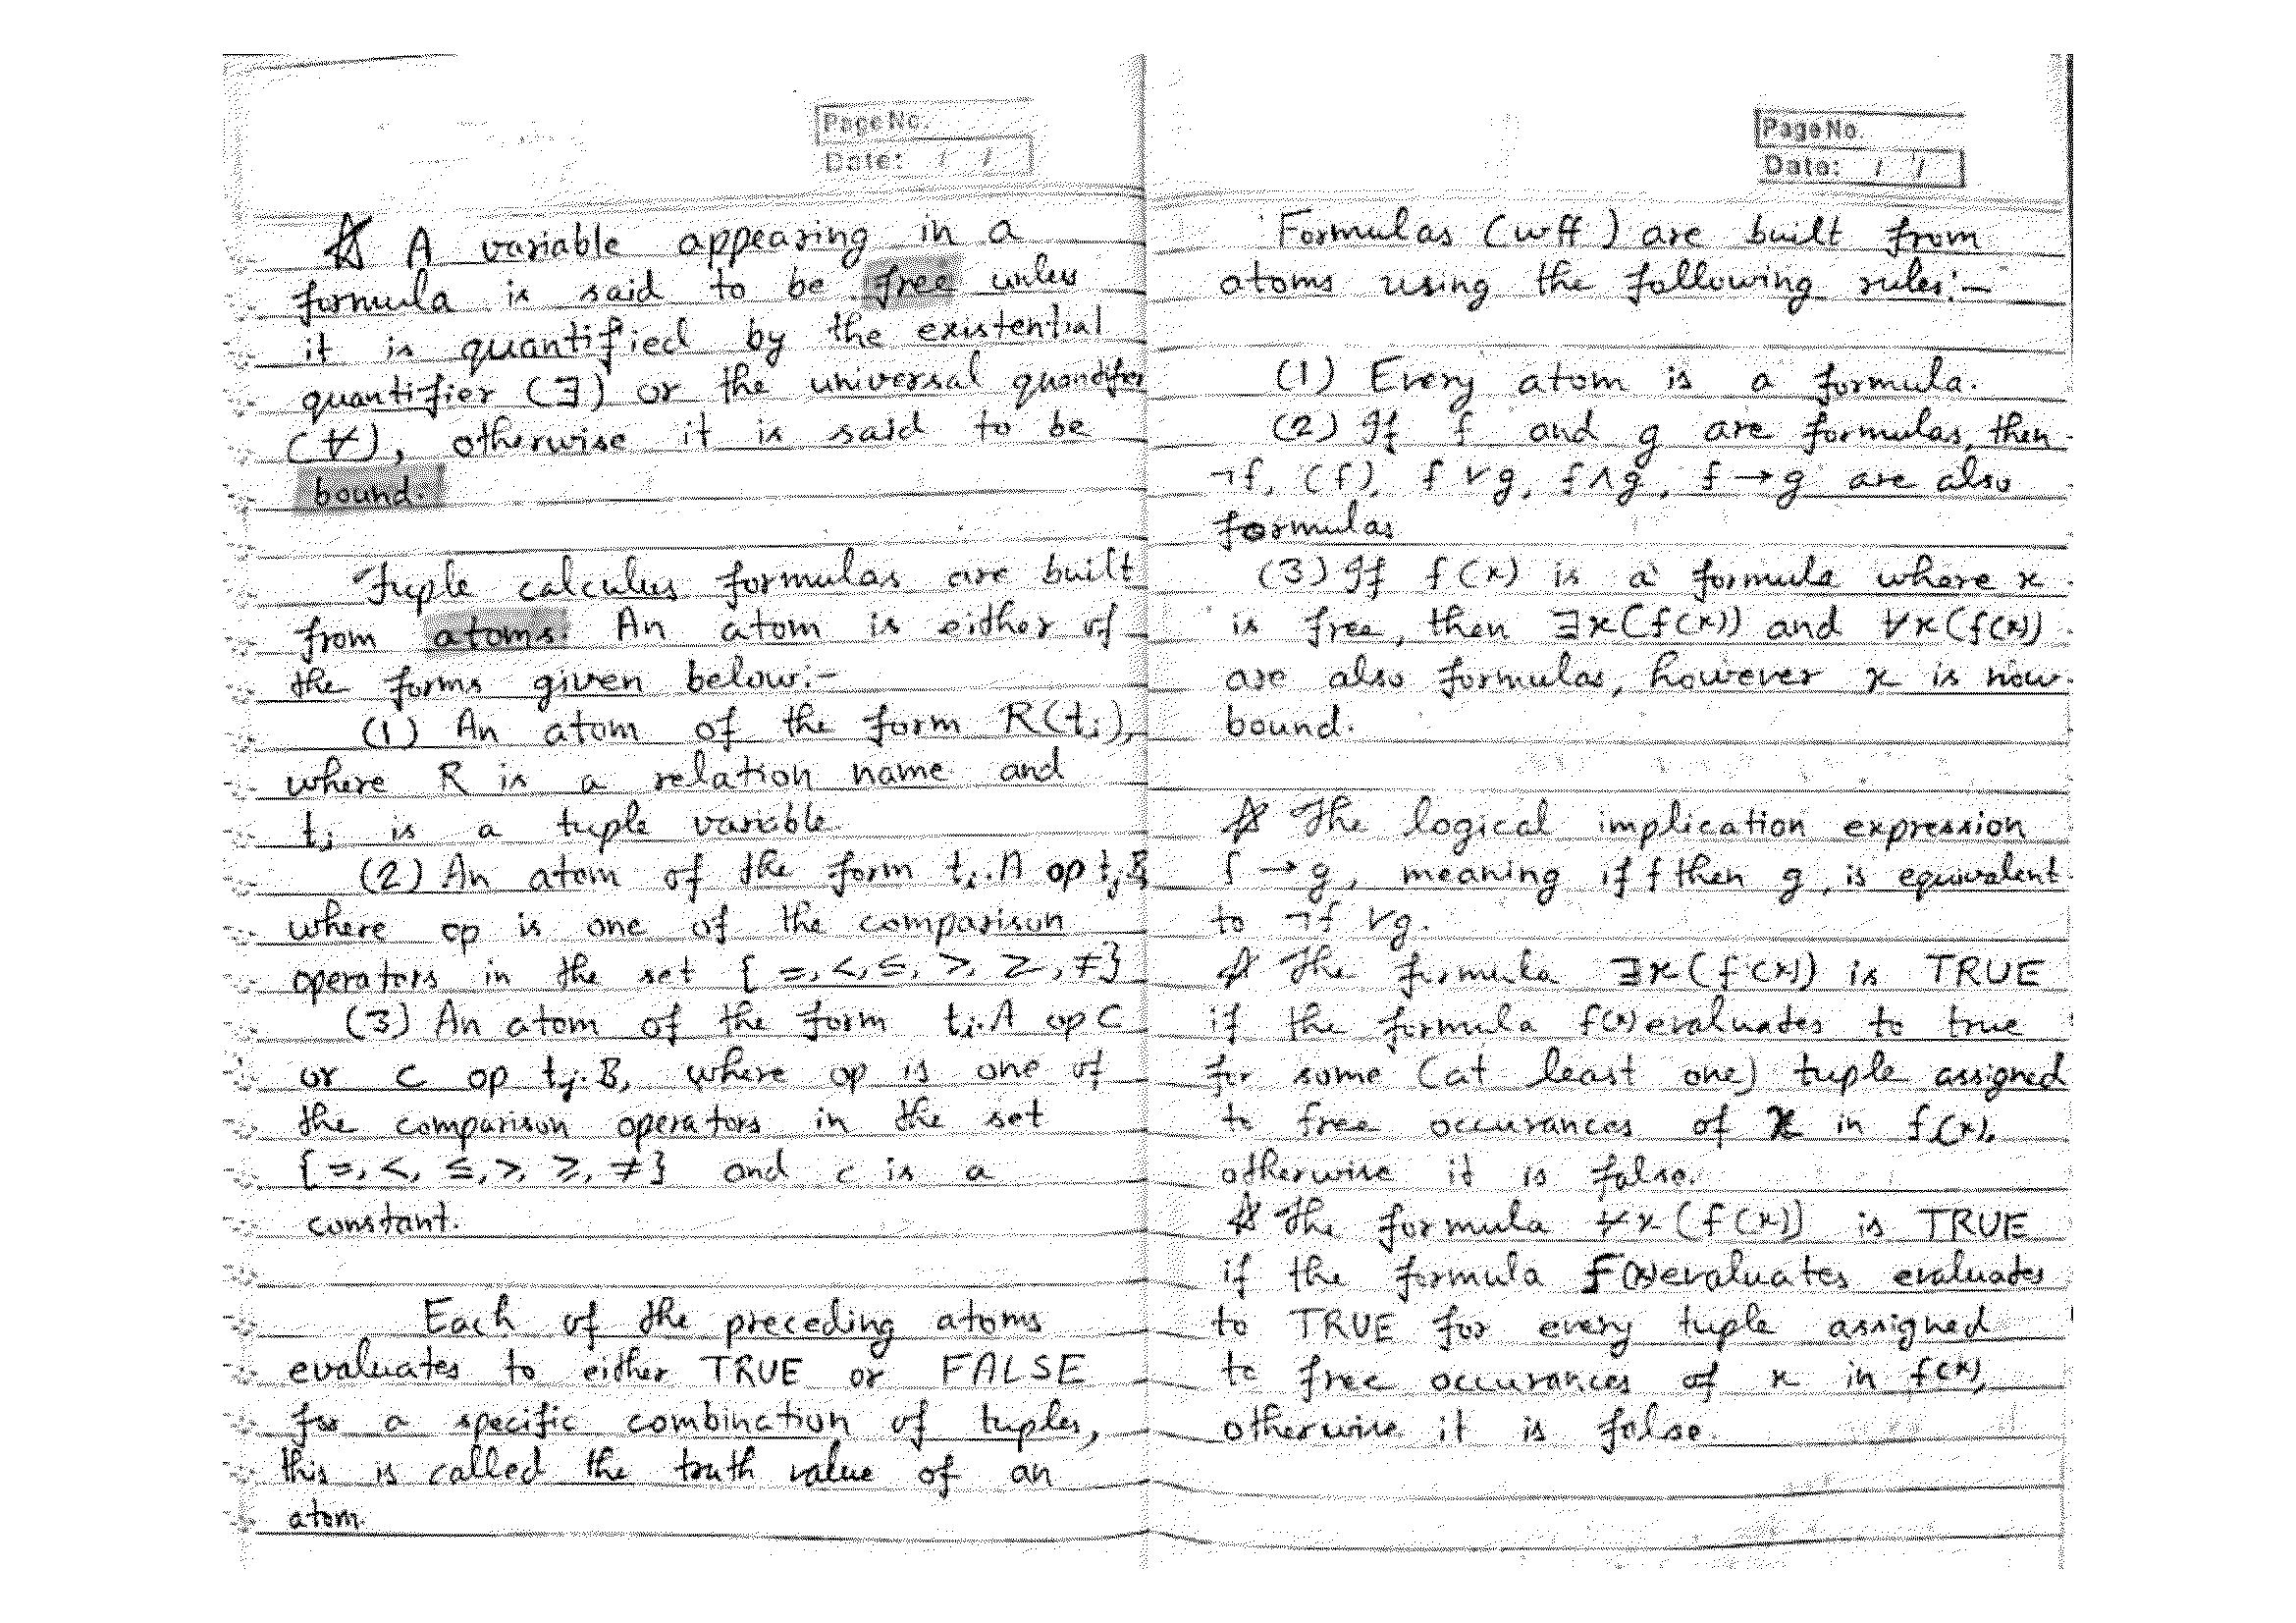 Page No.
Date: / /
☆ A variable appearing in a
formula is said to be free unless
it is quantified by the existential
quantifier (∃) or the universal quantifier
(∀), otherwise it is said to be
bound.
Tuple calculus formulas are built
from atoms. An atom is either of
the forms given below:-
(1) An atom of the form R(ti),
where R is a relation name and
ti is a tuple variable.
(2) An atom of the form ti.A op tj.B,
where op is one of the comparison
operators in the set { =, <, ≤, >, ≥, ≠}
(3) An atom of the form ti.A op C
or C op tj.B, where op is one of
the comparison operators in the set
{ =, <, ≤, >, ≥, ≠} and c is a
constant.
Each of the preceding atoms
evaluates to either TRUE or FALSE
for a specific combination of tuples,
this is called the truth value of an
atom.
Page No.
Date: / /
Formulas (wff) are built from
atoms using the following rules:-
(1) Every atom is a formula.
(2) If f and g are formulas, then
¬f, (f), f ∨ g, f ∧ g, f → g are also
formulas
(3) If f(x) is a formula where x
is free, then ∃x(f(x)) and ∀x(f(x))
are also formulas, however x is now
bound.
☆ The logical implication expression
f → g, meaning if f then g, is equivalent
to ¬f ∨ g.
☆ The formula ∃x(f(x)) is TRUE
if the formula f(x) evaluates to true
for some (at least one) tuple assigned
to free occurances of x in f(x),
otherwise it is false.
☆ The formula ∀x(f(x)) is TRUE
if the formula F(x) evaluates evaluates
to TRUE for every tuple assigned
to free occurances of x in f(x),
otherwise it is false.